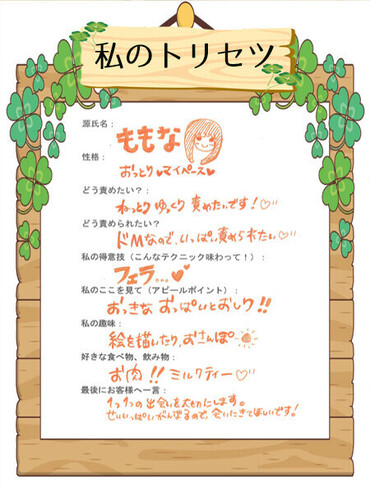 私のトリセツ
源氏名：
ももな
性格：
おっとり♥マイペース♥
どう責めたい？：
ねっとりゆっくり責めたいです！♡
どう責められたい？：
ドMなので、いっぱい責められたい♡
私の得意技（こんなテクニック味わって！）：
フェラ...♥
私のここを見て（アピールポイント）：
おっきなおっぱいとおしり!!
私の趣味：
絵を描いたり、おさんぽ
好きな食べ物、飲み物：
お肉!! ミルクティー♡
最後にお客様へ一言：
1つ1つの出会いを大切にします。
せいいっぱいがんばるので、会いにきてほしいです！